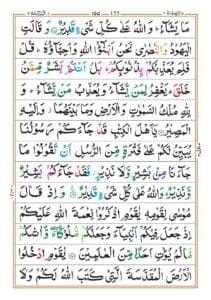 مَا يَشَآءُ ؕ وَاللّٰهُ عَلٰى كُلِّ شَىْءٍ قَدِيْرٌ وَقَالَتِ
الْيَهُوْدُ وَالنَّصٰرٰى نَحْنُ اَبْنٰٓؤُا اللّٰهِ وَاَحِبَّآؤُهٗ ؕ قُلْ
فَلِمَ يُعَذِّبُكُمْ بِذُنُوْبِكُمْ ؕ بَلْ اَنْتُمْ بَشَرٌ مِّمَّنْ
خَلَقَ ؕ يَغْفِرُ لِمَنْ يَّشَآءُ وَيُعَذِّبُ مَنْ يَّشَآءُ ؕ وَلِلّٰهِ
مُلْكُ السَّمٰوٰتِ وَالْاَرْضِ وَمَا بَيْنَهُمَا وَاِلَيْهِ
الْمَصِيْرُ يٰٓاَهْلَ الْكِتٰبِ قَدْ جَآءَكُمْ رَسُوْلُنَا
يُبَيِّنُ لَكُمْ عَلٰى فَتْرَةٍ مِّنَ الرُّسُلِ اَنْ تَقُوْلُوْا مَا
جَآءَنَا مِنْۢ بَشِيْرٍ وَّلَا نَذِيْرٍ فَقَدْ جَآءَكُمْ بَشِيْرٌ
وَّنَذِيْرٌ ؕ وَاللّٰهُ عَلٰى كُلِّ شَىْءٍ قَدِيْرٌ وَاِذْ قَالَ
مُوْسٰى لِقَوْمِهٖ يٰقَوْمِ اذْكُرُوْا نِعْمَةَ اللّٰهِ عَلَيْكُمْ
اِذْ جَعَلَ فِيْكُمْ اَنْۢبِيَآءَ وَجَعَلَكُمْ مُّلُوْكًا وَّاٰتٰىكُمْ
مَّا لَمْ يُؤْتِ اَحَدًا مِّنَ الْعٰلَمِيْنَ يٰقَوْمِ ادْخُلُوا
الْاَرْضَ الْمُقَدَّسَةَ الَّتِىْ كَتَبَ اللّٰهُ لَكُمْ وَلَا